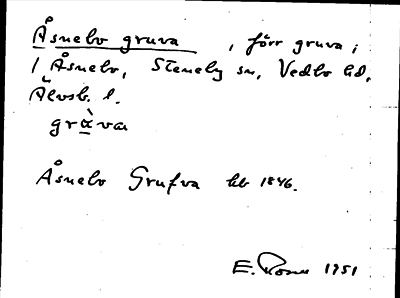 Åsnebo gruva, förr gruva i
/ Åsnebo, Steneby sn, Vedbo hd,
Älvsb. l.
gràva
Åsnebo Grufva hb 1846.
E. 1951